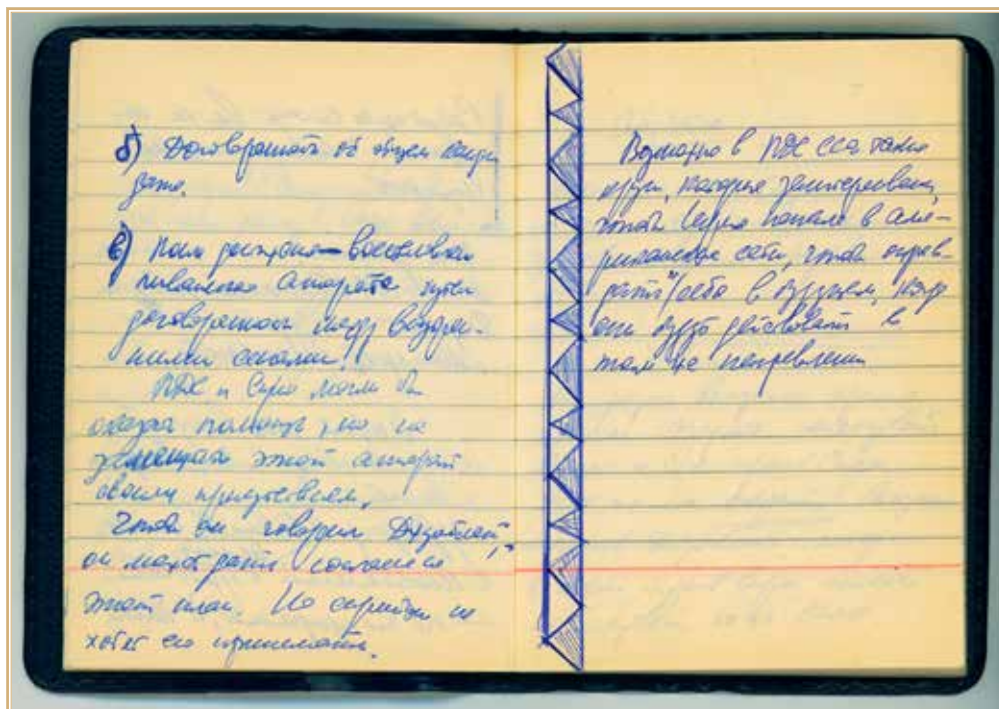 б) Договоренность об общем канди
дате.
в) восстанов
аппарата путем
договоренности между вооружен-
ными силами.
ПДС и Сирия могли бы
оказать помощь, но не
замещать этот аппарат
своим присутствием.
он говорил
он может дать согласие на
этот план. Но сирийцы не
хотят его принимать.
Возможно в ПДС есть такие
круги, которые заинтересованы,
чтобы Сирия попала в аме-
риканские сети, чтобы оправ-
дать себя в будущем, когда
они будут действовать в
том же направлении